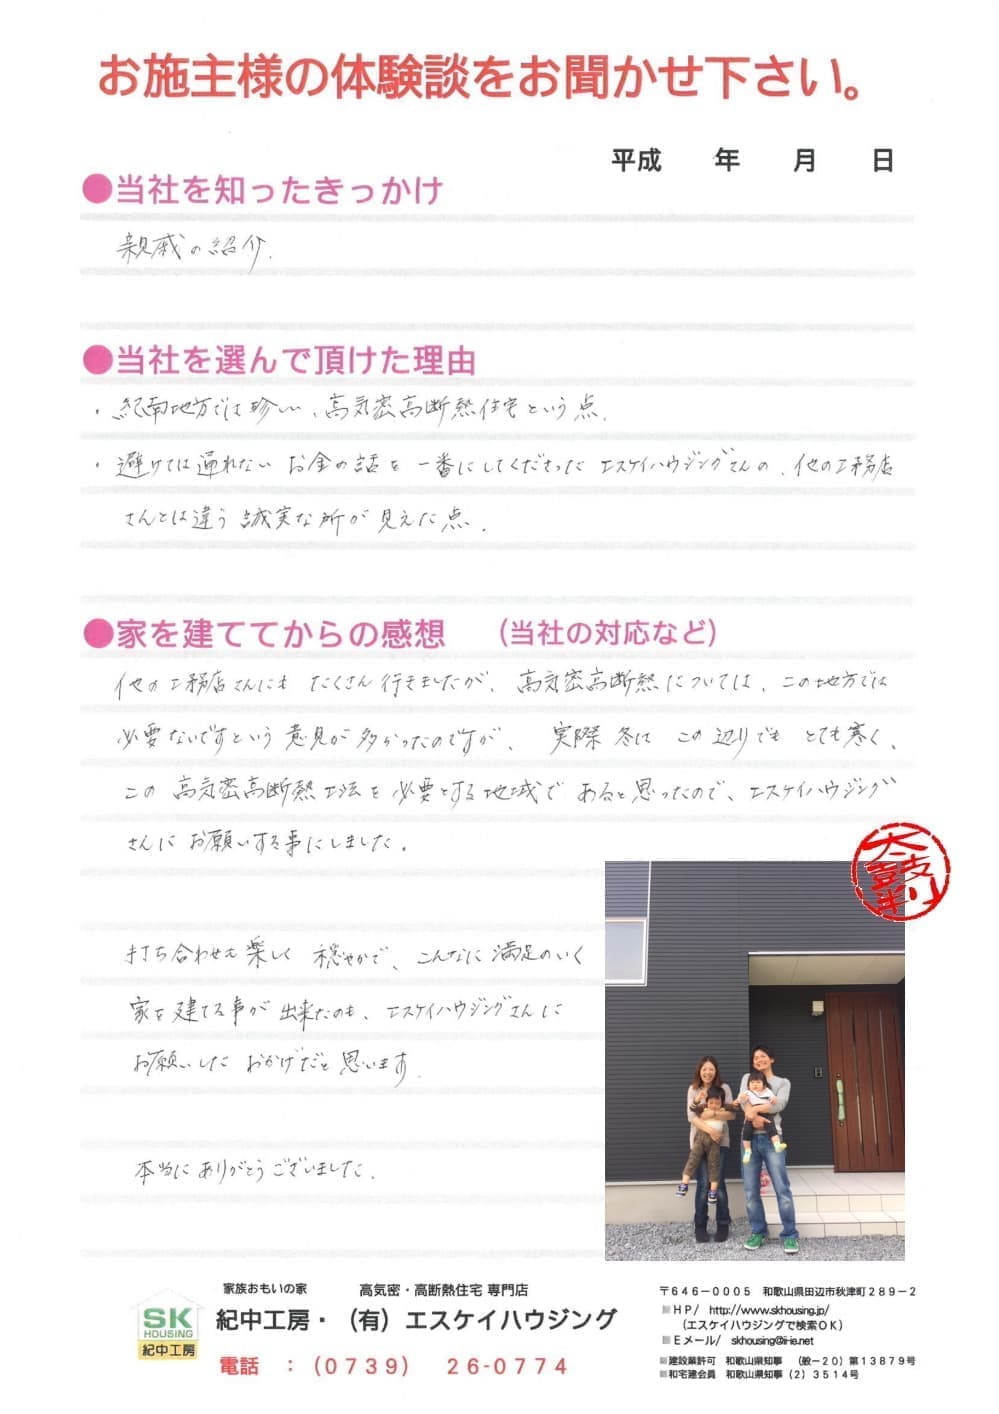 お施主様の体験談をお聞かせ下さい。
平成　　年　　月　　日
●当社を知ったきっかけ
親戚の紹介.
●当社を選んで頂けた理由
・紀南地方では珍しい、高気密高断熱住宅という点.
・避けては通れない お金の話を 一番にしてくださった エスケイハウジングさんの、他の工務店
さんとは違う 誠実な所が 見えた点.
●家を建ててからの感想　（当社の対応など）
他の工務店さんにも たくさん行きましたが、高気密高断熱については、この地方では
必要ないですという 意見が 多かったのですが、実際 冬は この辺りでも とても寒く、
この 高気密高断熱工法を 必要とする地域で あると思ったので、エスケイハウジング
さんに お願いする事にしました。
打ち合わせも楽しく 穏やかで、こんなに 満足のいく
家を建てる事が 出来たのも、エスケイハウジングさんに
お願いした おかげだと思います.
本当に ありがとうございました.
太鼓判
家族おもいの家　高気密・高断熱住宅 専門店
SK
HOUSING
紀中工房
紀中工房・（有）エスケイハウジング
電話　：（0739）　26-0774
〒646－0005　和歌山県田辺市秋津町289－2
■HP/　http://www.skhousing.jp/
（エスケイハウジングで検索OK）
■Eメール/　skhousing@ii-ie.net
■建設業許可　和歌山県知事　（般－20）第13879号
■和宅建会員　和歌山県知事（2）3514号